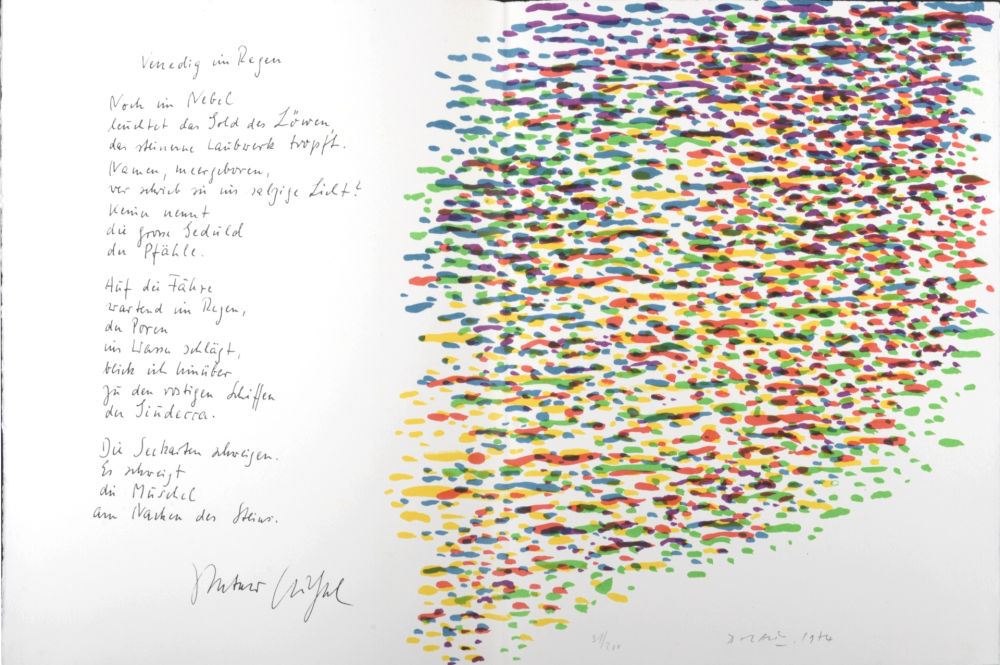 Venedig im Regen
Noch im Nebel
leuchtet das Gold des Löwen,
das steinerne Laubwerk tropft.
Namen, meergeboren,
wer schrieb sie ins salzige Licht?
Keiner nennt
die grosse Geduld
der Pfähle.
Auf die Fähre
wartend im Regen,
der Poren
ins Wasser schlägt,
blick ich hinüber
zu den rostigen Schiffen
der Giudecca.
Die Seekarten schweigen.
Es schweigt
die Muschel
am Nacken des Steins.
31/200
Dorazio. 1974